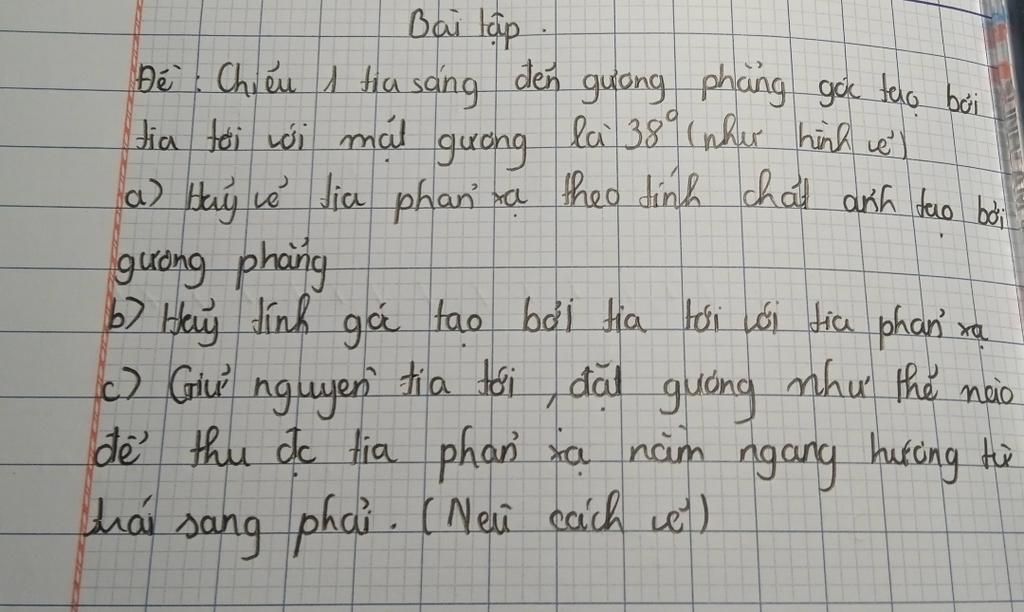 Bài tập.
Đề: Chiếu 1 tia sáng đến gương phẳng góc tạo bởi
tia tới với mặt gương là 38° (như hình vẽ)
a) Hãy vẽ tia phản xạ theo tính chất ảnh tạo bởi
gương phẳng
b) Hãy tính góc tạo bởi tia tới với tia phản xạ
c) Giữ nguyên tia tới, đặt gương như thế nào
để thu đc tia phản xạ nằm ngang hướng từ
trái sang phải. (Nêu cách vẽ)